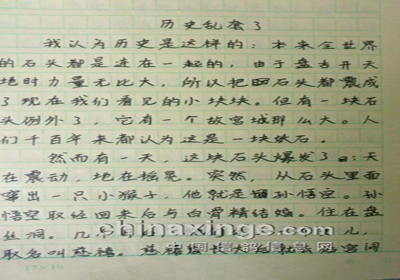 历史乱套了
我认为历史是这样的：本来全世界
的石头都是连在一起的，由于盘古开天
地时力量无比大，所以把石头都震成
了现在我们看见的小块块。但有一块石
头例外了，它有一个故宫城那么大。人
们千百年来都认为这是一块妖石。
然而有一天，这块石头爆发了：天
在震动，地在摇晃。突然，从石头里面
穿出一只小猴子，他就是孙悟空。孙
悟空取经回来后与白骨精结婚。住在盘
丝洞。几
儿，
取名叫慈禧。慈禧
chinaxinge.com
中国信鸽信息网